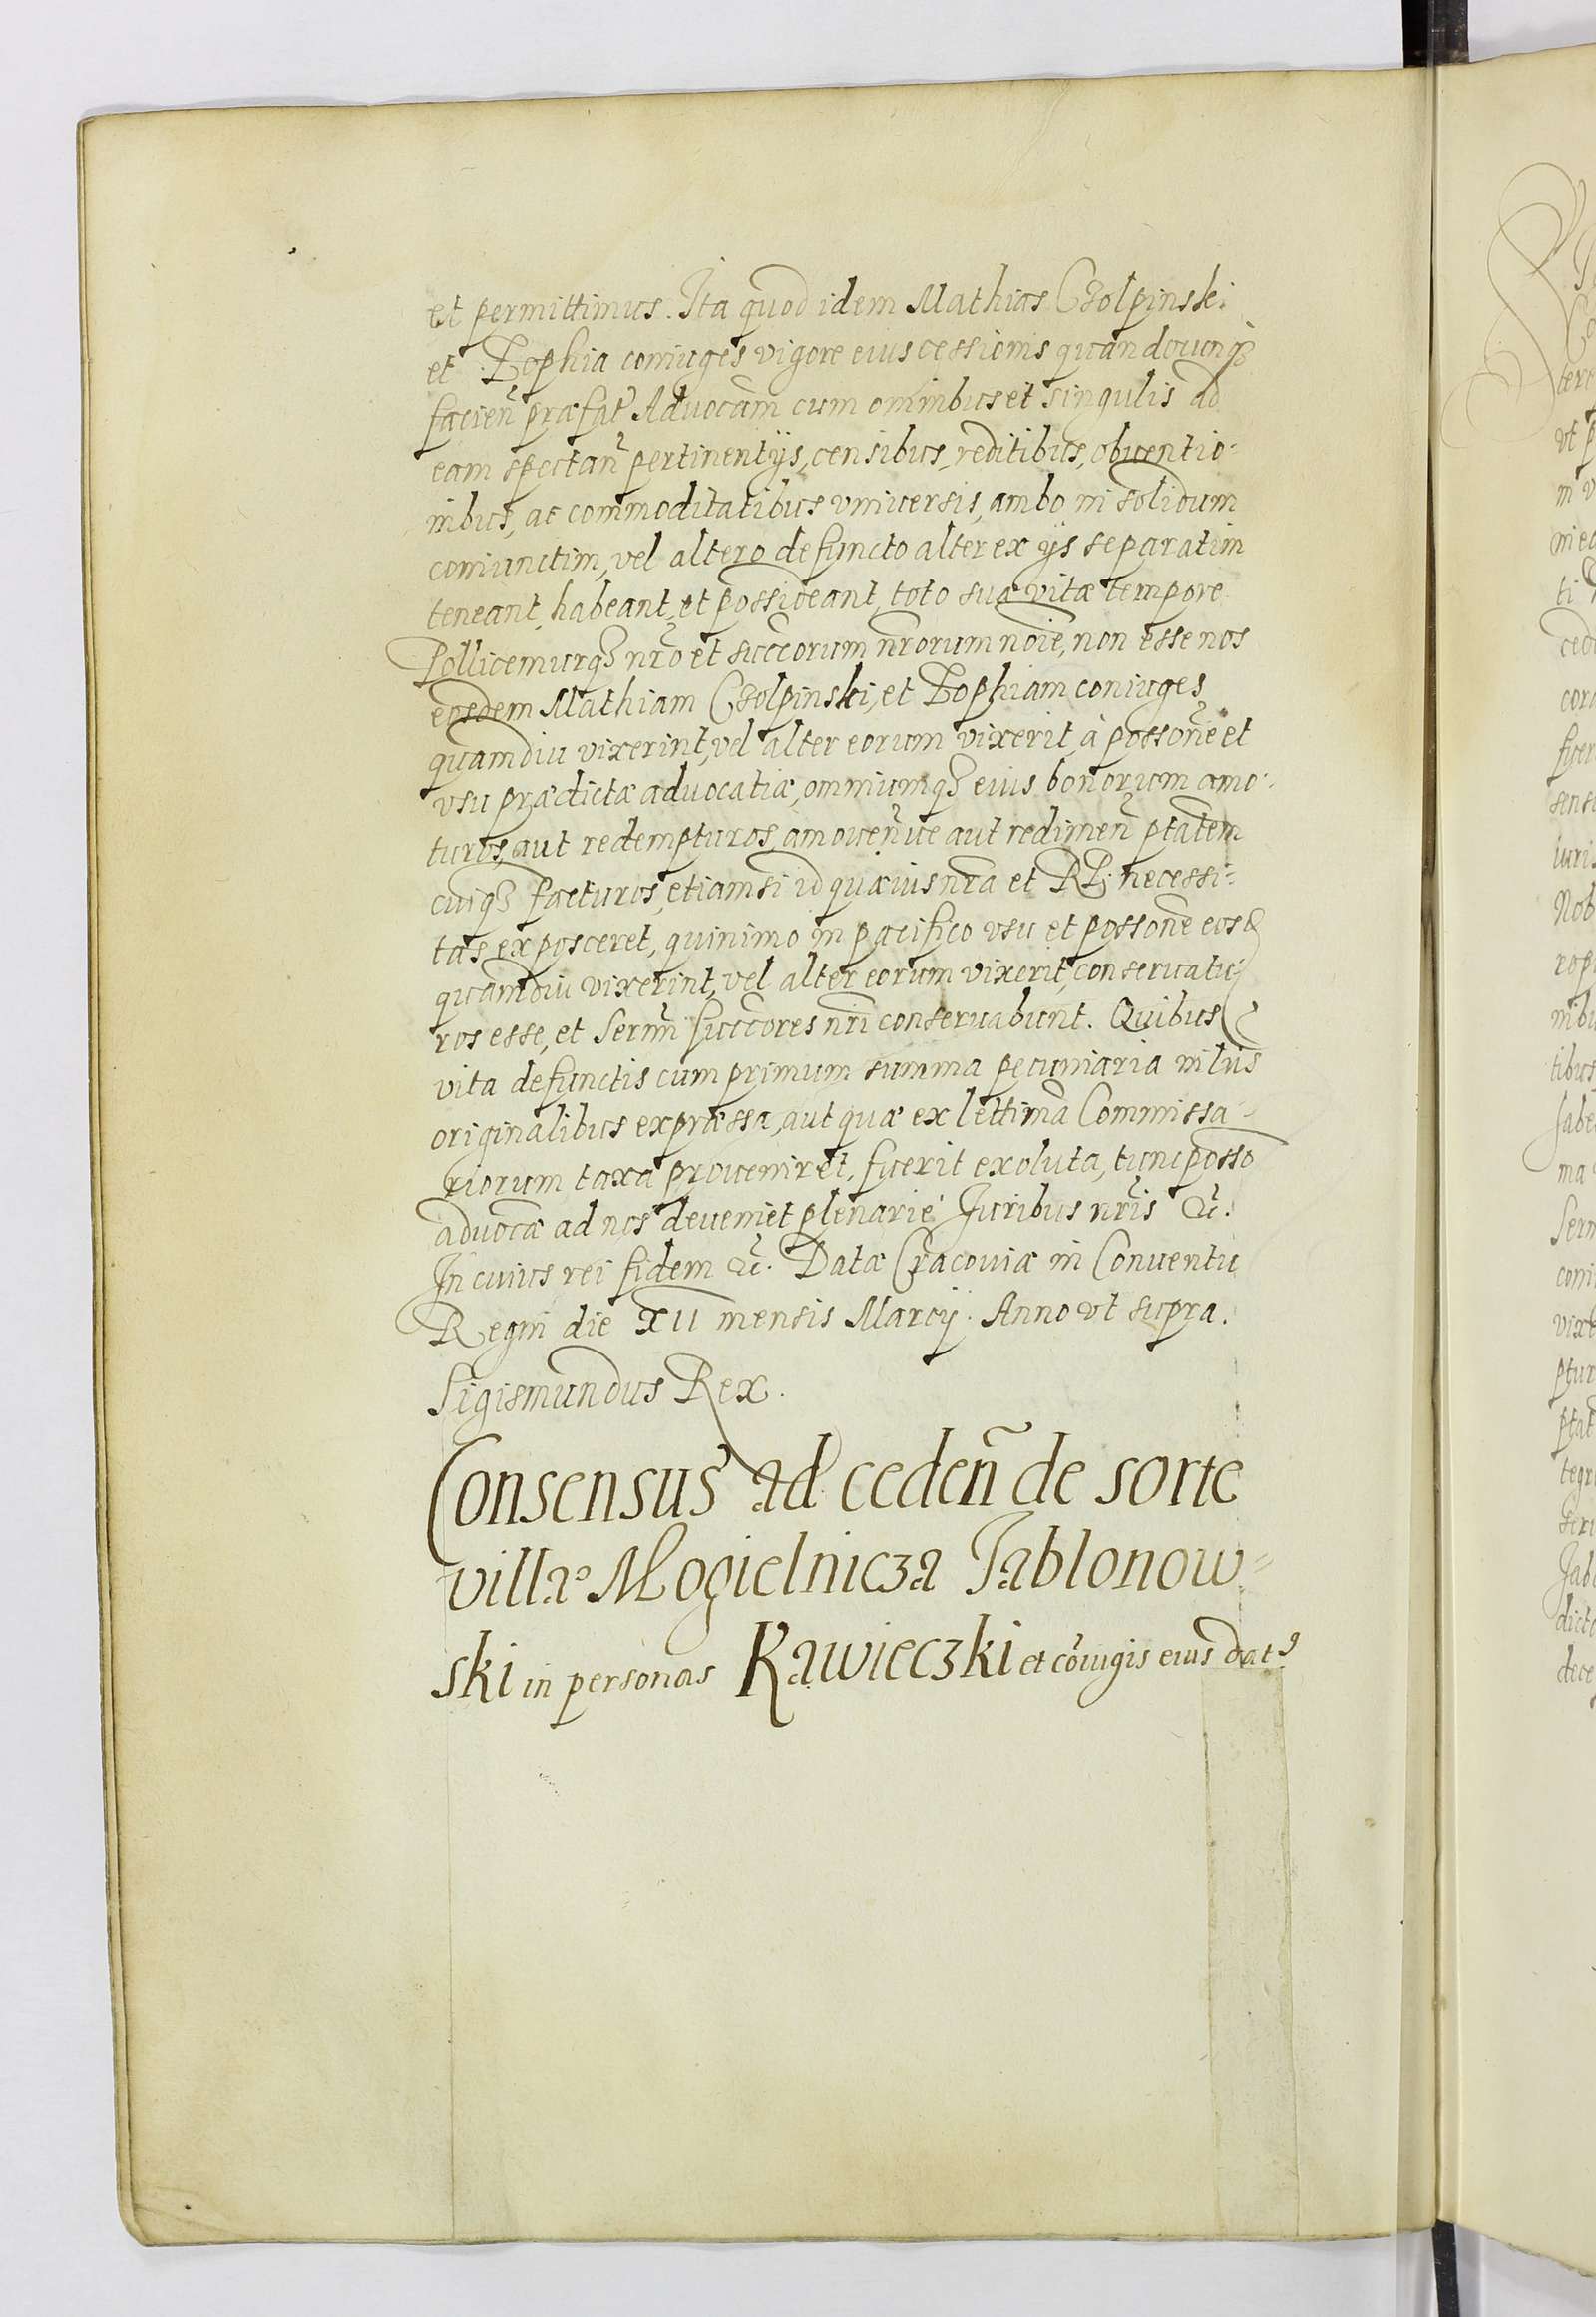 et permittimus. Ita quod idem Mathias Czolpinski
et Zophia coniuges vigore eius cessionis quandocunq3
facień præfat Advocam̃ cum omnibus et singulis ad
eam spectań pertinentijs, censibus, reditibus, obuentio-
nibus, ac commoditatibus vniuersis, ambo in solidum
coniunctim, vel altero defuncto alter ex ijs separatim
teneant, habeant, et possideant, toto suæ vitæ tempore
Pollicemurq3 nrõ et succõrum nrõrum noiẽ, non esse nos
eosdem Mathiam Czolpinski, et Zophiam coniuges
quamdiu vixerint, vel alter eorum vixerit, à possoñe et
vsu prædictæ aduocatiæ, omniumq3 eius bonorum amo-
turos, aut redempturos, amoueńue aut redimeń ptãtem
cuiq3 facturos, etiamsi id quæuis nrã et RP. necessi-
tas exposceret, quinimo in pacifico vsu et possoñe eosd
quamdiu vixerint, vel alter eorum vixerit, conseruatu-
ros esse, et Sermi succõres nri conseruabunt. Quibus
vita defunctis cum primum summa pecuniaria in lris
originalibus expræssa, aut quæ ex lettima Commissa-
riorum taxa proueniret, fuerit exoluta, tunc posso
advocæ ad nos deueniet plenarie Iuribus nris &c.
In cuius rei fidem &c. Datæ Cracoviæ in Conventu
Regni die XII mensis Marcij. Anno vt supra.
Sigismundus Rex.
Consensus ad cedeñ de sorte
villæ Mogielnicza Jablonow-
ski in personas Kawieczki et coiugis eius dat